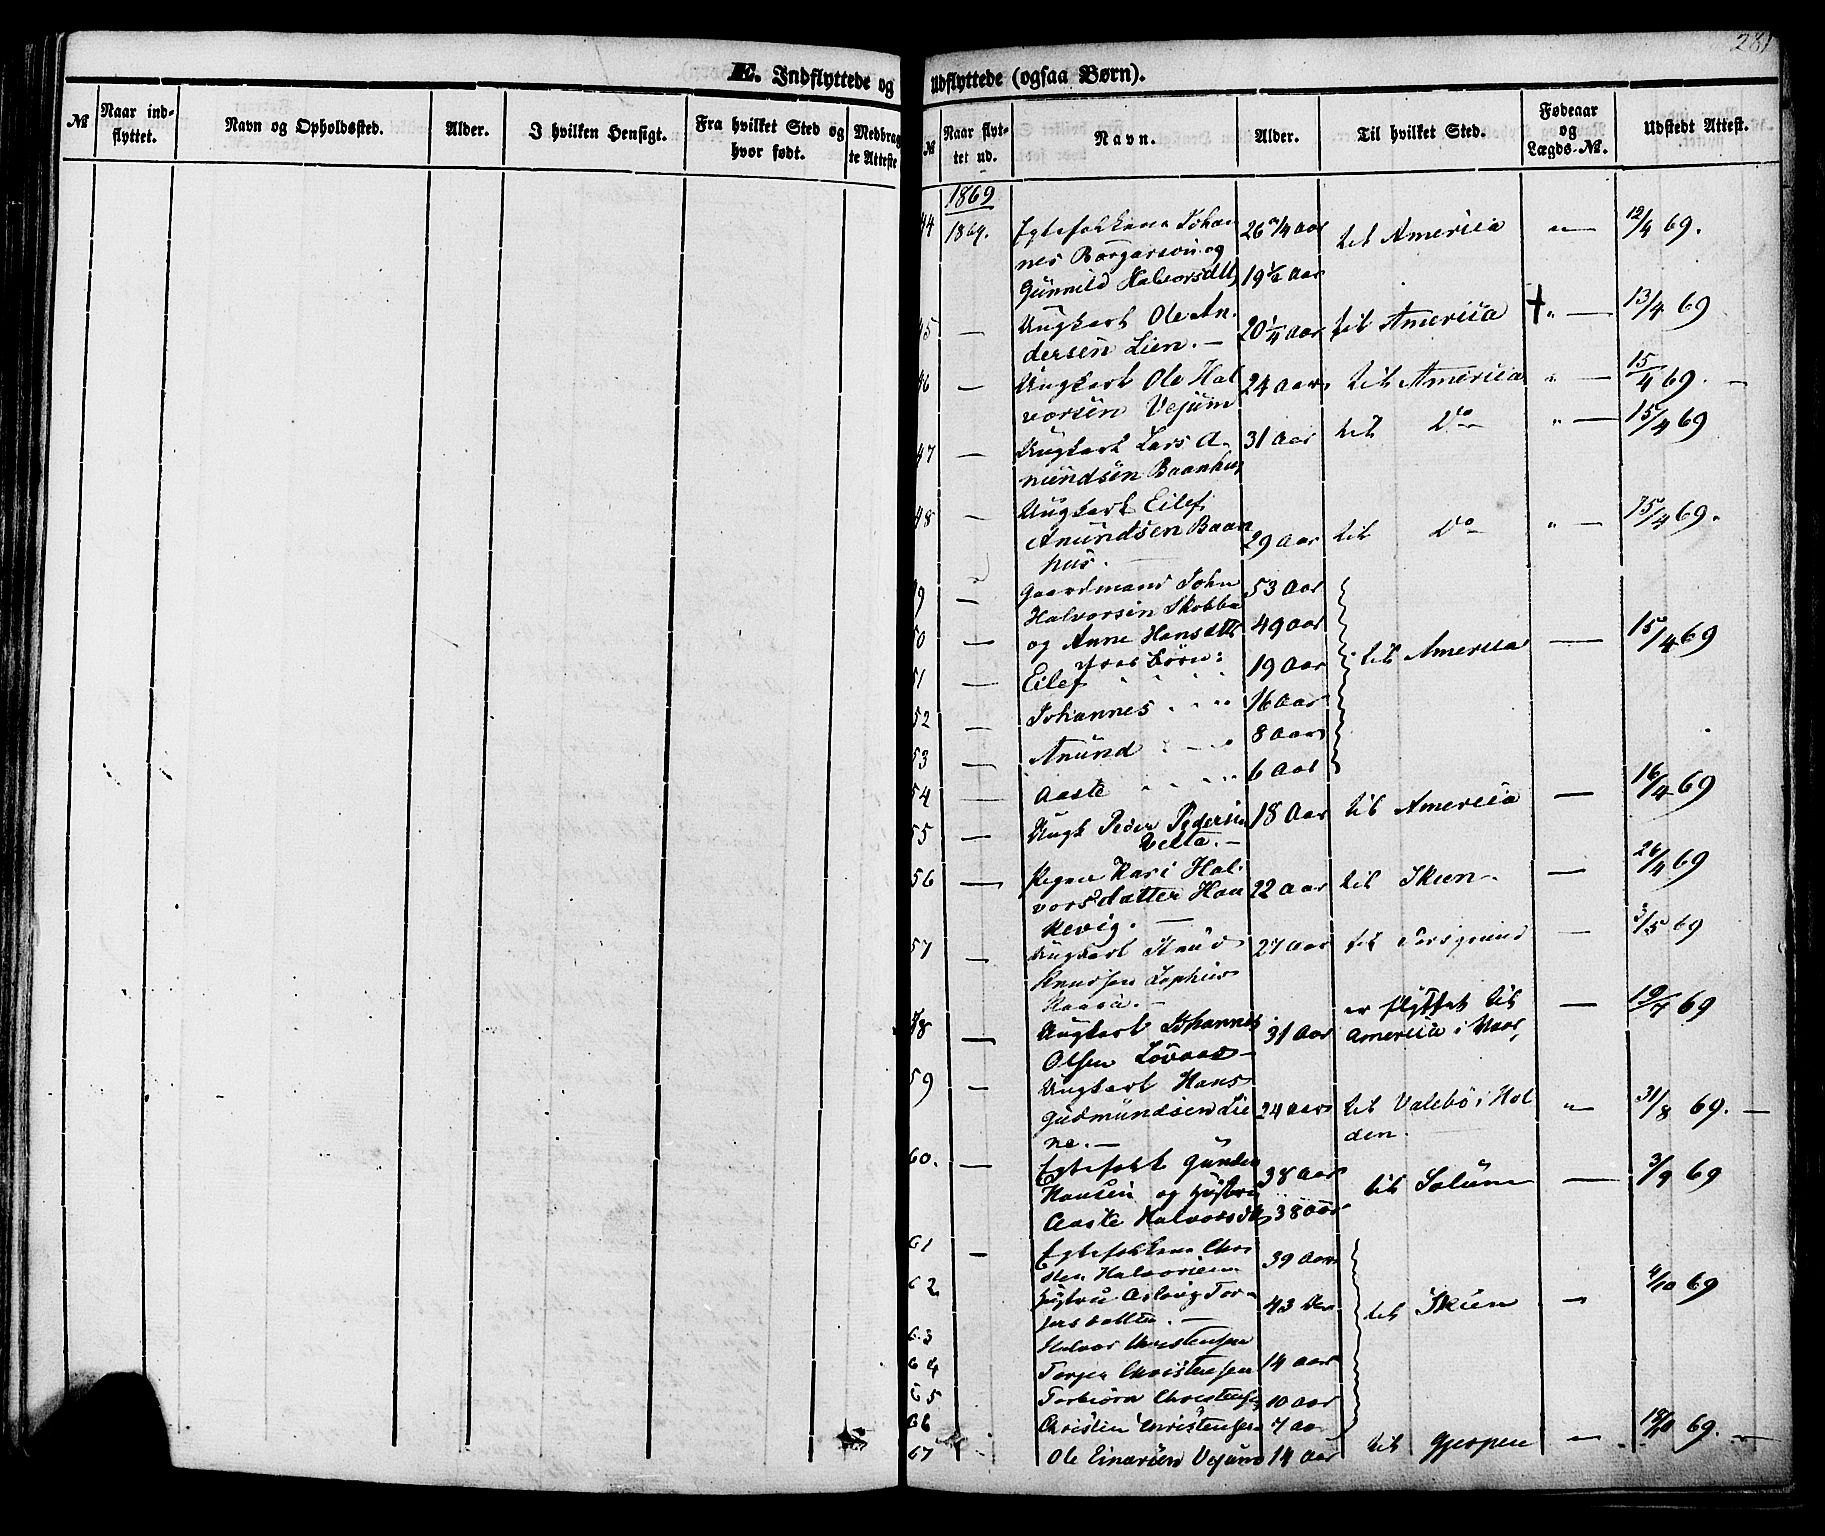 281
E. Indflyttede og udflyttede (ogsaa Børn).
№
Naar indflyttet.
Navn og Opholdssted.
Alder.
I hvilken Hensigt.
Fra hvilket Sted og hvor født.
Medbragte Atteste
№
Naar flyttet ud.
Navn.
Alder.
Til hvilket Sted.
Fødeaar og Lægds-№.
Udstedt Attest.
1869
44 1869. Egtefolkene Johan 26 til America " — 12/4 69.
nes Borgersen og
Gunnild Halvorsdtt, 19 1/2 Aar
45 — Ungkarl Ole An- 20 1/4 Aar til America + " — 13/4 69
dersen Lien. —
46 — Ungkarl Ole Hal 24 Aar til America " — 15/4 69. —
vorsen Vejum
47 — Ungkarl Lars A- 31 Aar til Do " — 15/4 69
nundsen Baanhus
48 — Ungkarl Eilef 29 Aar til Do " — 15/4 69.
Anundsen Baan
hus. —
49 — Gaardmand John 53 Aar
Halvorsen Skobba
50 — og Anne Hansdtt 49 Aar til America — 15/4 69
Børn:
51 — Eilef " " " 19 Aar
52 — Johannes " " " 16 Aar
53 — Anund " — " 8 Aar
54 — Aaste " " " 6 Aar
55 — Ungk Peder Pedersen 18 Aar til America — 16/4 69
Vetta. —
56 — Pigen Kari Hal- 22 Aar til Skien — 26/4 69
vorsdatter Hau
kevig. —
57 — Ungkarl Knud 27 Aar til Porsgrund — 3/5 69
Knudsen
58 — Ungkarl Johannes 31 Aar er flyttet til — 19/7 69
Olsen Løvaas — America i Vaar
59 — Ungkarl Hans
Gudmundsen Lie 24 Aar til Valebø i Hol " — 31/8 69. —
ne. — den.
60. — Egtefolk Gunder 38 Aar til Solum — 3/9 69
Hansen og Hustru
Aaste Halvorsdtt 38 Aar
61 — Egtefolkene Chri 39 Aar
sten Halvorsen
62 Hustru Aslaug Tor 43 Aar til Skien — 4/10 69
jersdatter. —
63 Halvor Christensen
64 Torjer Christensen 14 Aar
65 Torbiørn Christensen 10 Aar
66 Christen Christensen 7 Aar
67 — Ole Einarsen Vejum 14 Aar til Gjerpen — 18/10 69. —